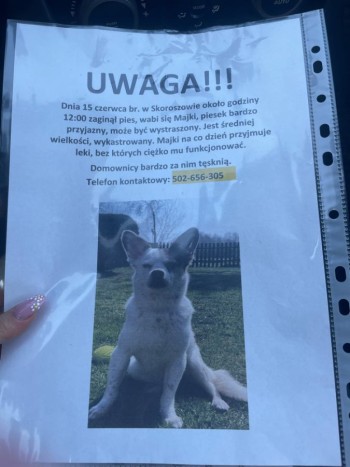 UWAGA!!!
Dnia 15 czerwca br. w Skoroszowie około godziny
12:00 zaginął pies, wabi się Majki, piesek bardzo
przyjazny, może być wystraszony. Jest średniej
wielkości, wykastrowany. Majki na co dzień przyjmuje
leki, bez których ciężko mu funkcjonować.
Domownicy bardzo za nim tęsknią.
Telefon kontaktowy: 502-656-305